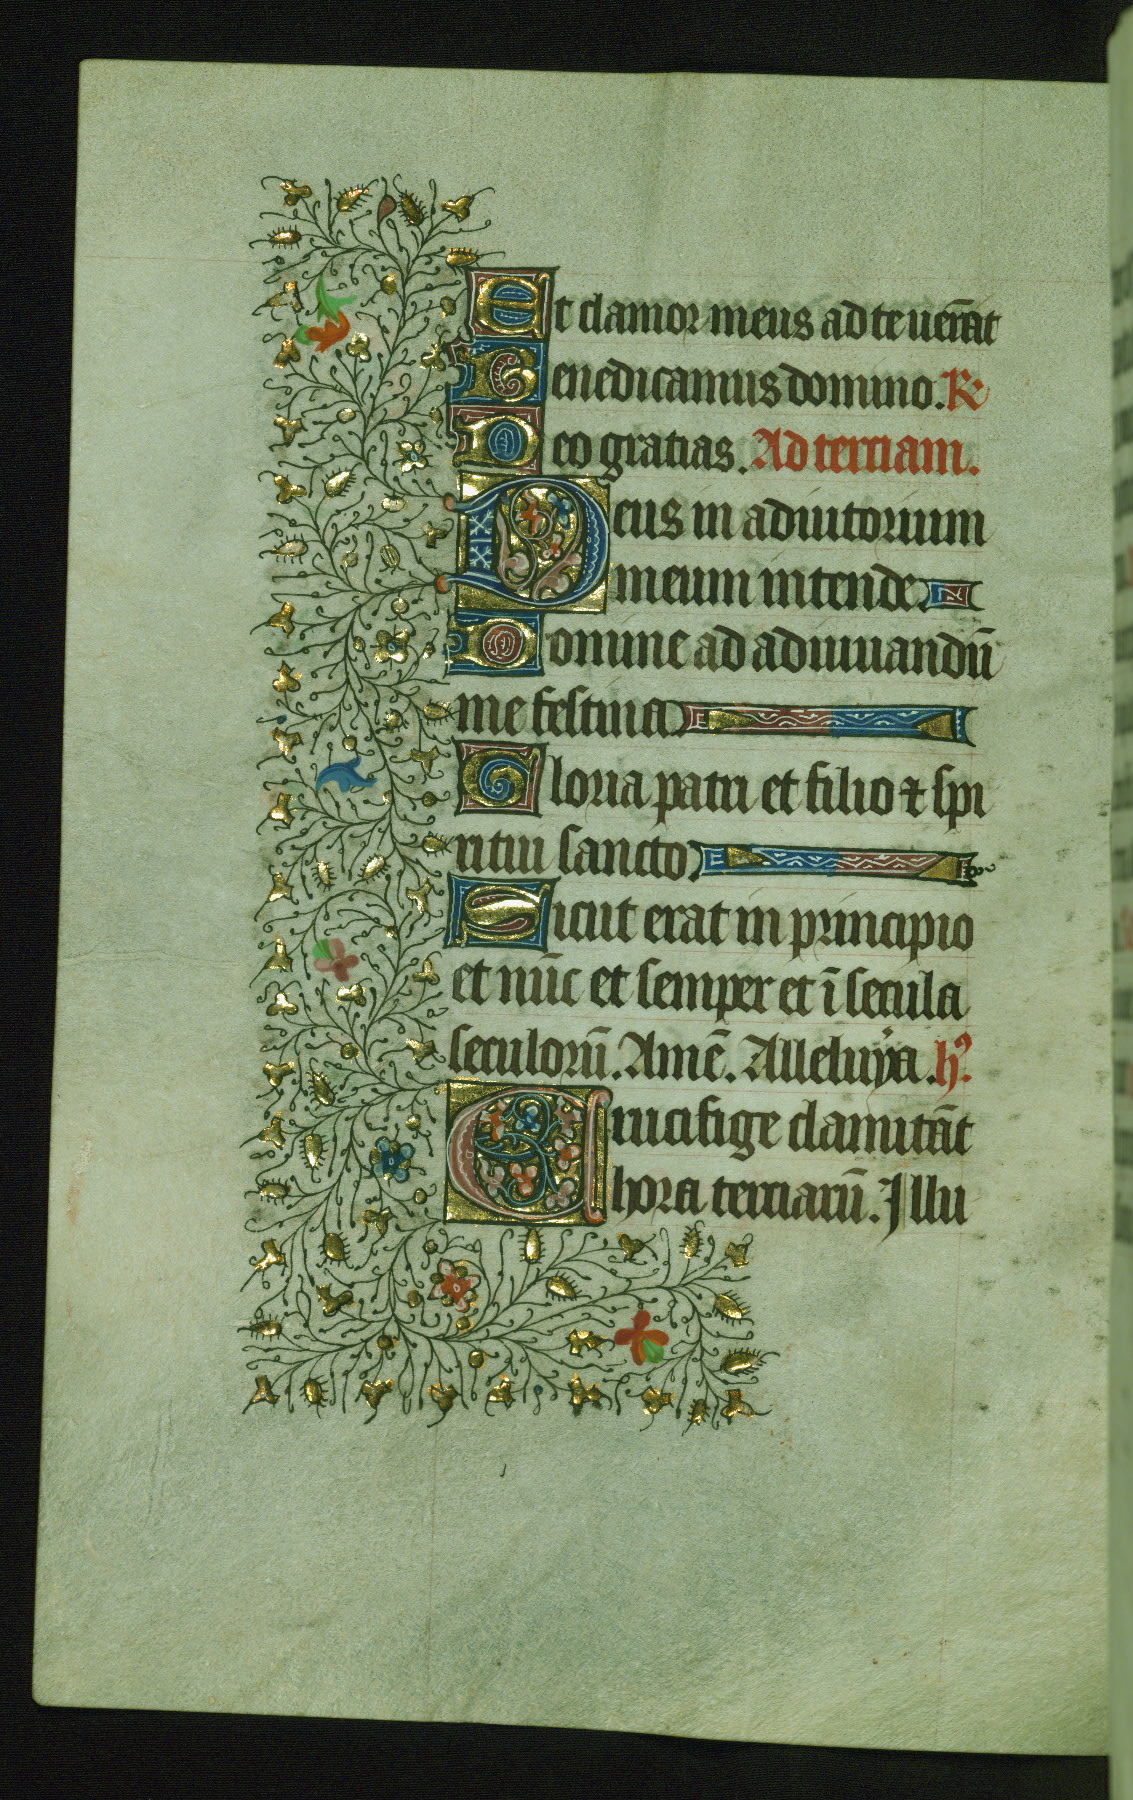 Et clamor meus ad te uen̄at
Benedicamus domino. R
Deo gratias. Ad terciam.
Deus in adiutorium
meum intende
Domine ad adiuuandū
me festina
Gloria patri et filio ⁊ spi
ritui sancto
Sicut erat in principio
et nūc et semper et ī secula
seculorū. Amē. Alleluya. hꝰ.
Crucifige clamitāt
hora terciarū. Illu